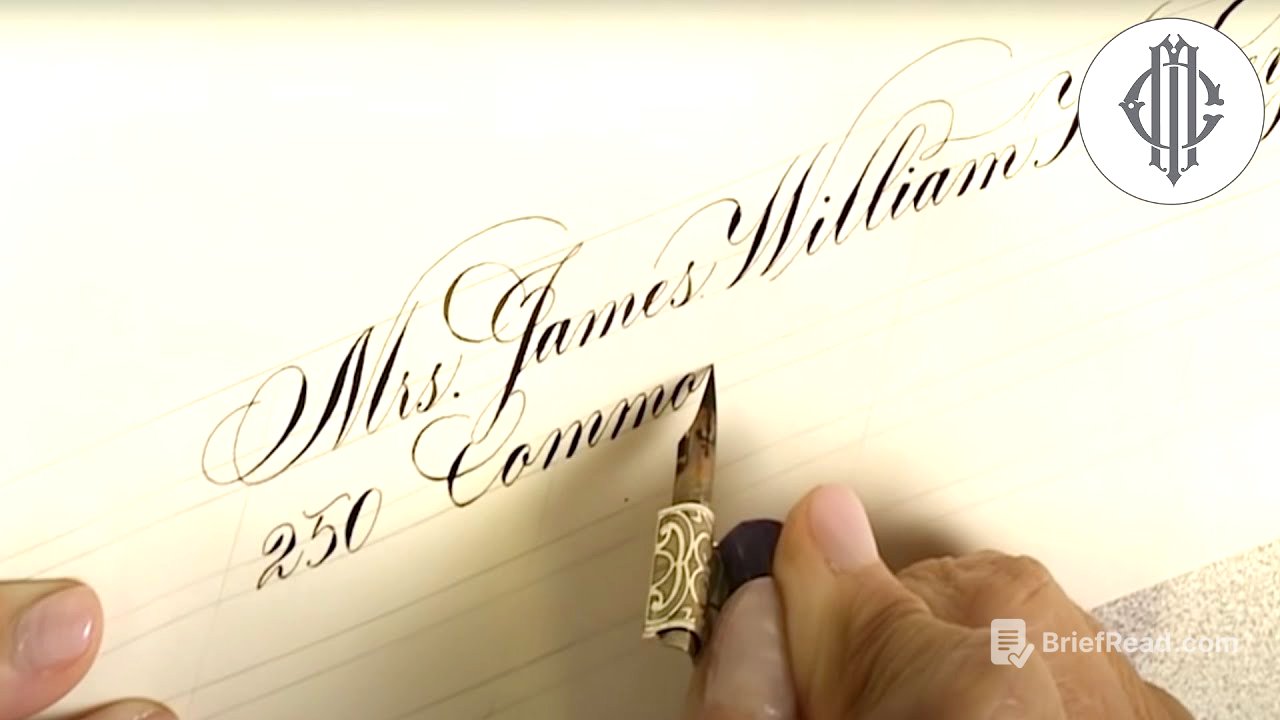 Mrs. James William
250 Commo
BriefRead.com